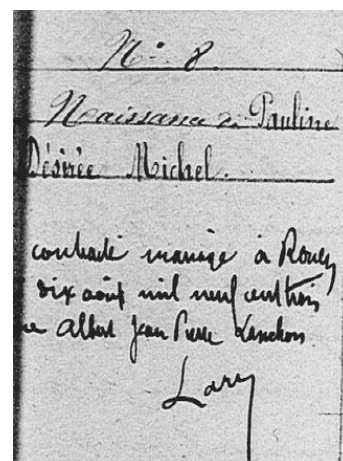 N° 8.
Naissance de Pauline
Désirée Michel.
contracté mariage à Rouen
dix août mil neuf cent trois
Albert Jean Pierre
Lary